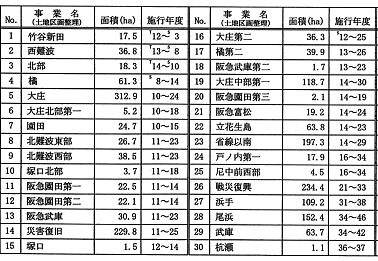 No. 事業名(土地区画整理) 面積(ha) 施行年度
1 竹谷新田 17.5 T12~S3
2 西難波 36.8 T13~S8
3 北部 18.3 T14~S10
4 橘 61.3 S8~14
5 大庄 312.9 10~24
6 大庄北部第一 5.2 10~18
7 園田 24.7 10~15
8 北難波東部 26.7 11~23
9 北難波西部 38.5 11~23
10 塚口北部 3.7 11~18
11 阪急園田第一 22.5 11~14
12 阪急園田第二 22.1 11~14
13 阪急武庫 30.9 11~23
14 災害復旧 229.8 11~25
15 塚口 1.5 12~14
No. 事業名(土地区画整理) 面積(ha) 施行年度
16 大庄第二 36.3 12~25
17 橘第二 39.9 13~26
18 阪急武庫第二 1.7 13~23
19 大庄中部第一 118.7 14~30
20 阪急園田第三 2.1 14~19
21 阪急富松 19.2 14~24
22 立花生島 63.8 14~23
23 省線以南 197.3 14~29
24 戸ノ内第一 17.9 16~34
25 尼中前西部 4.5 16~34
26 戦災復興 234.4 21~33
27 浜手 109.2 31~38
28 尾浜 152.4 34~46
29 武庫 63.7 34~42
30 杭瀬 1.1 36~37